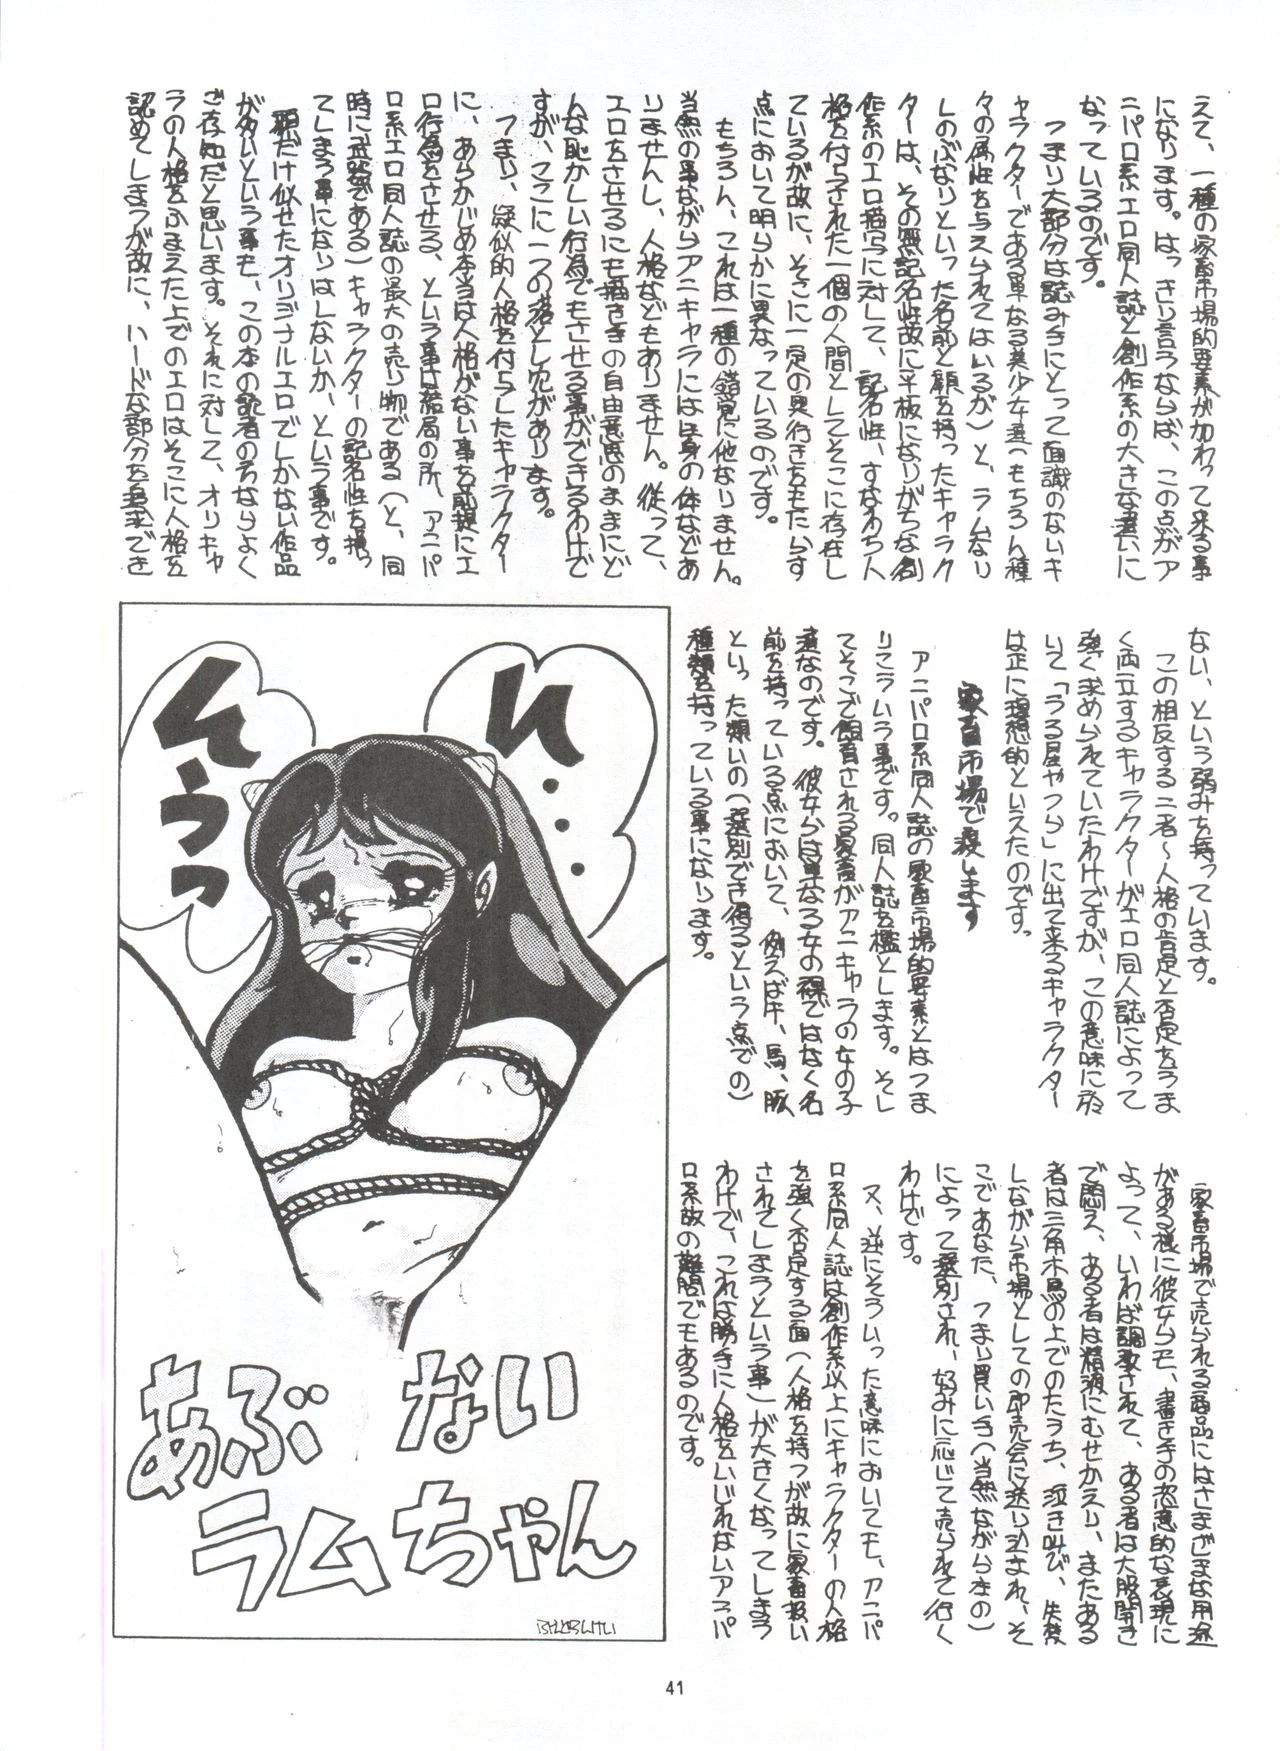 えて、一種の家畜市場的要素が加わって来る事
になります。はっきり言うならば、この点がア
ニパロ系エロ同人誌と創作系の大きな違いに
なっているのです。
つまり大部分は読み手にとって面識のないキ
ャラクターである単なる美少女達(もちろん種
々の属性を与えられてはいるが)と、ラムなり
しのぶなりといった名前と顔を持ったキャラク
ターは、その無記名性故に平板になりがちな創
作系のエロ描写に対して、記名性、すなわち人
格を付与された一個の人間としてそこに存在し
ているが故に、そこに一定の奥行きをもたらす
点において明らかに異なっているのです。
もちろん、これは一種の錯覚に他なりません。
当然の事ながらアニキャラには生身の体などあ
りませんし、人格などもありません。従って、
エロをさせるにも描き手の自由意思のままにど
んな恥かしい行為でもさせる事ができるわけで
すが、ここに一つの落とし穴があります。
つまり、疑似的人格を付与したキャラクター
に、あらかじめ本当は人格がない事を前提にエ
ロ行為をさせる、という事は結局の所、アニパ
ロ系エロ同人誌の最大の売り物である(と、同
時に武器である)キャラクターの記名性を損っ
てしまう事になりはしないか、という事です。
顔だけ似せたオリジナルエロでしかない作品
が多いという事も、この本の読者の方ならよく
ご存知だと思います。それに対して、オリキャ
ラの人格をふまえた上でのエロはそこに人格を
認めてしまうが故に、ハードな部分を追求でき
ない、という弱みを持っています。
この相反する二者～人格の肯定と否定をうま
く両立するキャラクターがエロ同人誌によって
強く求められていたわけですが、この意味に於
いて「うる星やつら」に出て来るキャラクター
は正に理想的といえたのです。
家畜市場で殺します
アニパロ系同人誌の家畜市場的要素とはつま
りこういう事です。同人誌を檻とします。そし
てそこで飼育される家畜がアニキャラの女の子
達なのです。彼女らは単なる女の裸ではなく名
前を持っている点において、例えば牛、馬、豚
といった類いの(選別でき得るという点での)
種類を持っている事になります。
家畜市場で売られる商品にはさまざまな用途
がある様に彼女らも、書き手の恣意的な表現に
よって、いわば調教されて、ある者は大股開き
で悶え、ある者は精液にむせかえり、またある
者は三角木馬の上でのたうち、泣き叫び、失禁
しながら市場としての即売会に送り込まれ、そ
こであなた、つまり買い手(当然ながら本の)
によって選別され、好みに応じて売られて行く
わけです。
又、逆にそういった意味においても、アニパ
ロ系同人誌は創作系以上にキャラクターの人格
を強く否定する面(人格を持つが故に家畜扱い
されてしまうという事)が大きくなってしまう
わけで、これは勝手に人格をいじれないアニパ
ロ系故の難問でもあるのです。
い・・・
んうっ
あぶない
ラムちゃん
41